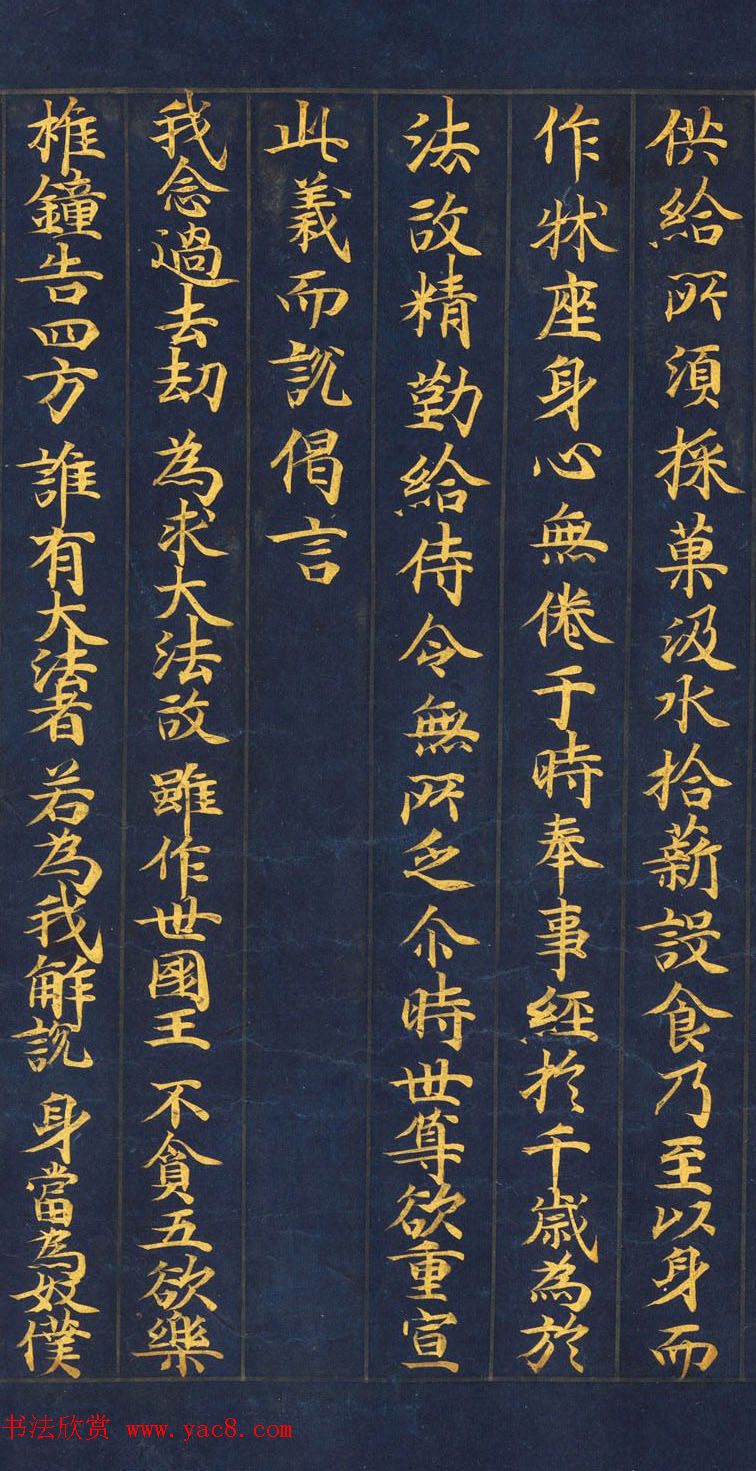 供給所須採菓汲水拾薪設食乃至以身而
作牀座身心無倦于時奉事經於千歲為於
法故精勤給侍令無所乏尒時世尊欲重宣
此義而說偈言
我念過去劫 為求大法故 雖作世國王 不貪五欲樂
椎鐘告四方 誰有大法者 若為我解說 身當為奴僕
书法欣赏 www.yac8.com